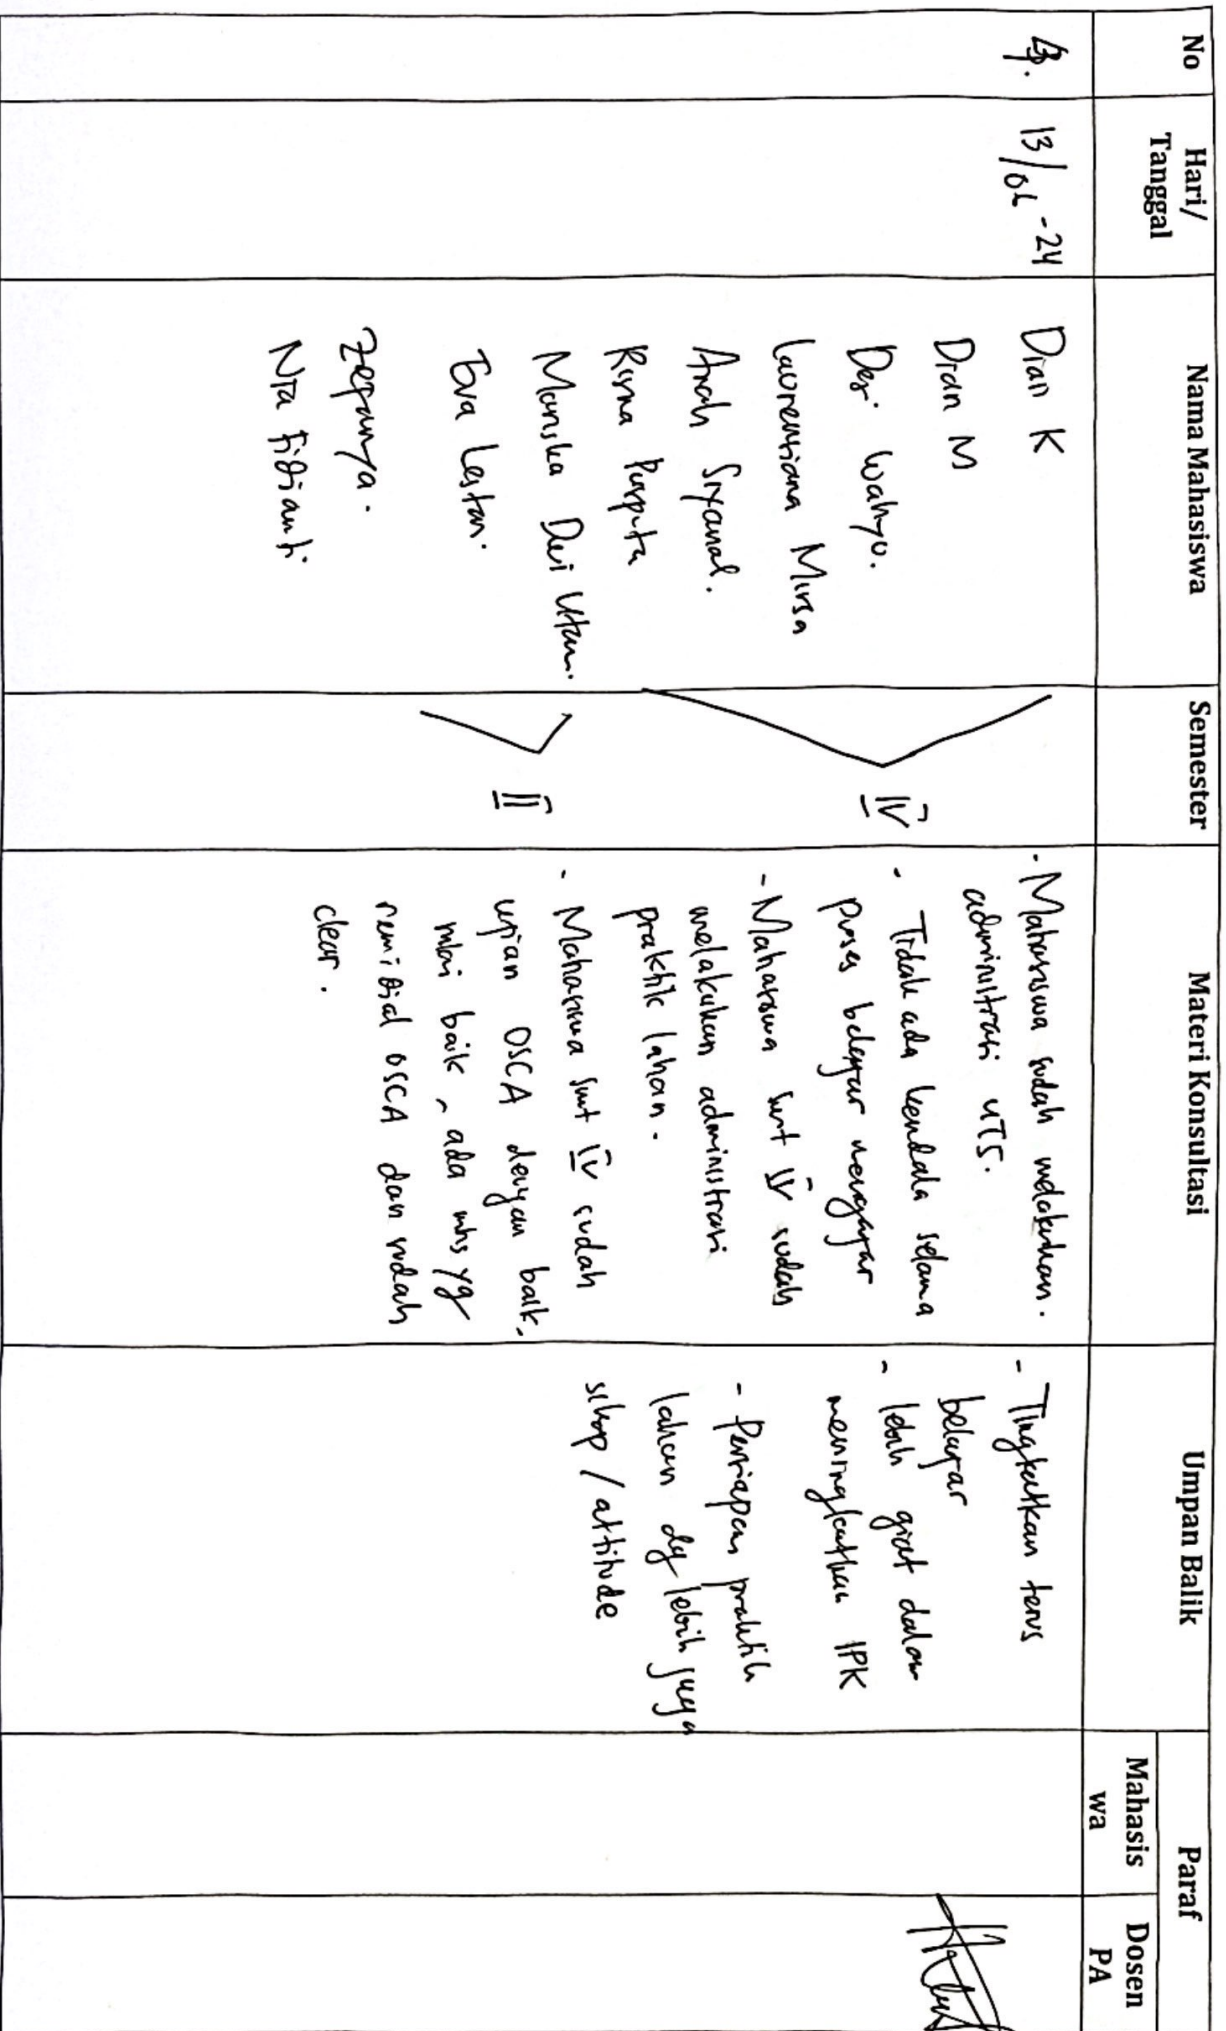 No
Hari/
Tanggal
Nama Mahasiswa
Semester
Materi Konsultasi
Umpan Balik
Paraf
Mahasis
wa
Dosen
PA
13/06-24
Dian K
Dian M
Desi Wahyu.
Laurensiana Mirsa
Risma Puspita
Mariska Dwi Utami.
Eva Lestari.
Zefanya.
Nia Fidianti
IV
II
- Mahasiswa sudah melakukan.
administrasi UTS.
- Tidak ada kendala selama
proses belajar mengajar
- Mahasiswa smt IV sudah
melakukan administrasi
praktik lahan.
- Mahasiswa smt IV sudah
ujian OSCA dengan baik.
nilai baik, ada mhs yg
remidial OSCA dan sudah
clear.
- Tingkatkan terus
belajar
- lebih giat dalam
meningkatkan IPK
- Persiapan praktik
lahan dg lebih juga
sikap / attitude